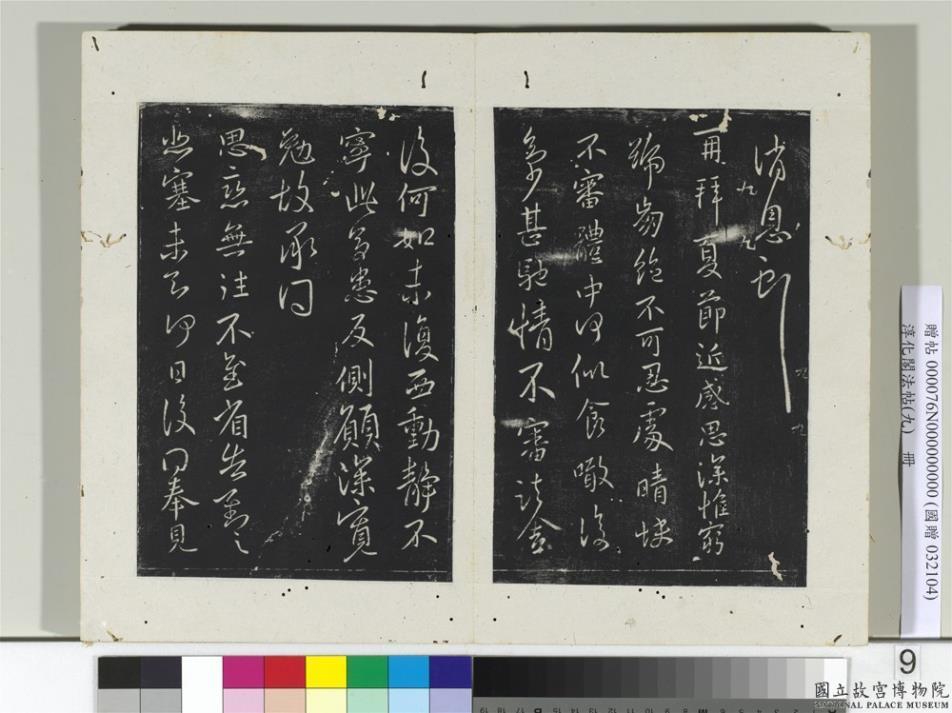 消息耶
再拜夏節近感思深惟窮
號崩絕不可忍處晴快
不審體中何似食噉復
多少甚馳情不審諸舍
復何如未復西動靜不
寧此多患反側願深寬
勉故承問
思戀無往不至省告對之
悲塞未知何日復叩奉見
九
九
九
九
贈帖 000076N000000000 (國贈 032104)
淳化閣法帖(九) 冊
9
國立故宮博物院
NATIONAL PALACE MUSEUM